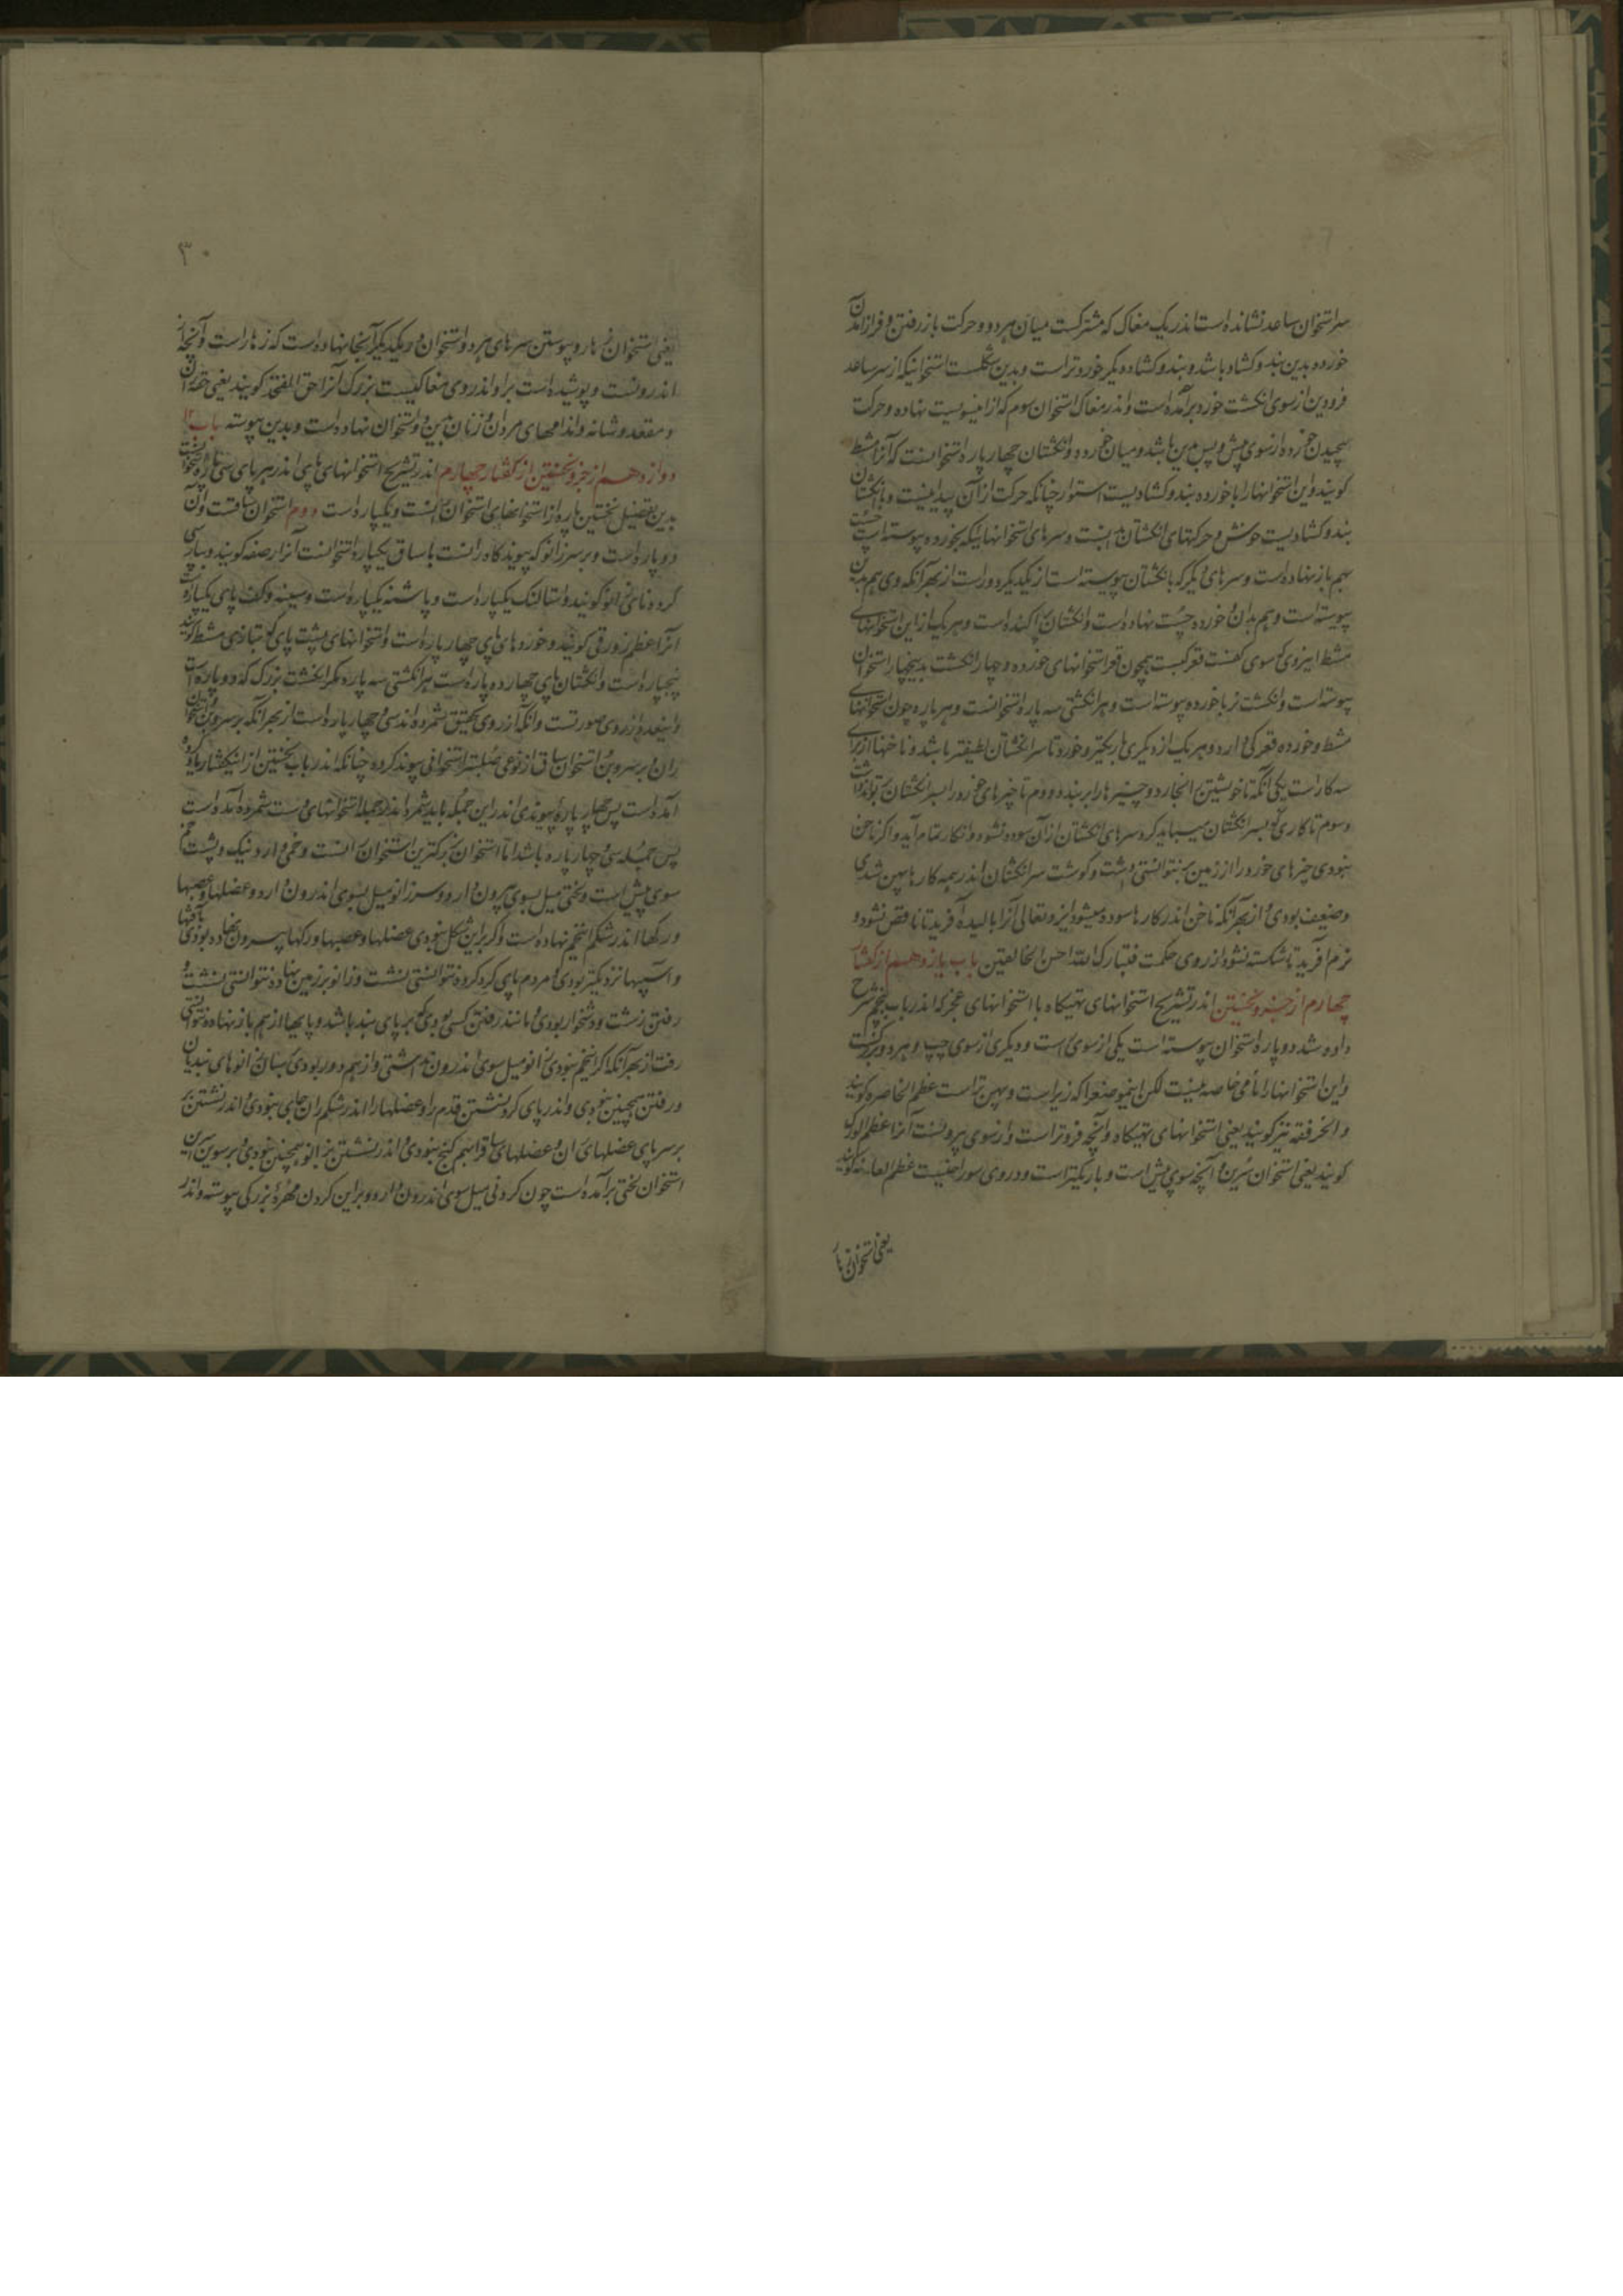 سر استخوان ساعد نشانده است اندر یک مغاک که مشترکست میان هر دو و حرکت باز رفتن و فراز آمدن
خورده بدین بند و کشاد باشد و بند و کشاد دیگر خوردتر است و بدین شکلست استخوانیکه از سر ساعد
فرودین از سوی انکشت خورد برآمده است و اندر مغاک استخوان سوم که از اینسویست نهاده و حرکت
پیچیدن خورده از سوی پیش و پس بدین باشد و میان خورده و انکشتان چهار پاره استخوانست که آنرا مشط
کویند و این استخوانها را با خورده بند و کشادیست استوار چنانکه حرکت از آن پیدا نیست و با انکشتان
بند و کشادیست خوش و حرکتهای انکشتان بدینست و سرهای استخوانها اینکه بخورده پیوسته است چست
بهم باز نهاده است و سرهای دیگر که بانکشتان پیوسته است از یکدیگر دور است از بهر آنکه وی هم بدین
پیوسته است و هم بدان و خورده چست نهاده است و انکشتان پراکنده است و هر یک از این استخوانهای
مشط از سوی کف دست قعرکیست همچون قعر استخوانهای خورده و چهار انکشت بدین چهار استخوان
پیوسته است و انکشت نر با خورده پیوسته است و هر انکشتی سه پاره استخوانست و هر پاره چون استخوانهای
مشط و خورده قعرکی دارد و هر یک از دیگری باریکتر و خوردتر تا سر انکشتان لطیفتر باشد و ناخنها از برای
سه کار است یکی آنکه تا خویشتن انجارد و چیزها را برنبدد دوم تا چیزهای خورد را بسر انکشتان بتواند داشت
و سوم تا کاری که بسر انکشتان میباید کرد سرهای انکشتان از آن سوده نشود و آن کار تمام آید و اکر ناخن
نبودی چیزهای خورد را از زمین بر نتوانستی داشت و کوشت سر انکشتان اندر همه کارها پهن شدی
و ضعیف بودی و از بهر آنکه ناخن اندر کارها سوده میشود ایزد تعالی آنرا بالیده آفرید تا ناقص نشود و
نرم آفرید تا شکسته نشود از روی حکمت فتبارک الله احسن الخالقین باب یازدهم از کفتار
چهارم از جزو نخستین اندر تشریح استخوانهای تهیکاه با استخوانهای عجز که اندر باب پنجم شرح
داده شد دو پاره استخوان پیوسته است یکی از سوی راست و دیگری از سوی چپ و هر دو بزرکست
و این استخوانها را نامی خاصه نیست لکن اینموضعرا که زبر است و پهن تر است عظم الخاصره کویند
و الحرقفه نیز کویند یعنی استخوانهای تهیکاه و آنچه فروتر است و از سوی بیرونست آنرا عظم الورک
کویند یعنی استخوان سرین و آنچه سوی پیش است و باریکتر است و در وی سوراخیست عظم العانه کویند
یعنی استخوان زهار
۳۰
یعنی استخوان زهار و پیوستن سرهای هر دو استخوان و بیکدیگر آنجا نهاده است که زهار است و آنچه از
اندرونست و پوشیده است بر او اندر وی مغاکیست بزرک آنرا حق الفخذ کویند یعنی حقه ران
و مقعد و شانه و اندامهای مردان و زنان بدین استخوان نهاده است و بدین پیوسته باب
دوازدهم از جزو نخستین از کفتار چهارم اندر تشریح استخوانهای پای اندر هر پای سی پاره استخوانست
بدین تفصیل نخستین پاره از استخوانهای استخوان رانست و یکپاره است دوم استخوان ساقست و آن
دو پاره است و بر سر زانو که پیوندکاه رانست با ساق یکپاره استخوانست آنرا رضفه کویند و بپارسی
کرده نای زانو کویند و اشتالنک یکپاره است و پاشنه یکپاره است و سینه و کف پای یکپاره است
آنرا عظم زورقی کویند و خوردهای پای چهار پاره است و استخوانهای پشت پای که بتازی مشط کویند
پنجپاره است و انکشتان پای چهارده پاره است هر انکشتی سه پاره مکر انکشت بزرک که دو پاره است
و اینعدد از روی صورتست و آنکه از روی تحقیق شمرده اند سی و چهار پاره است از بهر آنکه بر سر و بن استخوان
ران و بر سر و بن استخوان ساق از نوعی صلبتر استخوانی پیوند کرده چنانکه اندر باب نخستین از اینکفتار یاد کرده
آمده است پس چهار پاره پیوندی اندر این جمله باید شمرد اندر جمله استخوانهای دست شمرده آمده است
پس جمله سی و چهار پاره باشد اما استخوان ران بزرکترین استخوان تن است و خمی دارد نیک و پشت خم
سوی پیش است و لختی میل بسوی بیرون دارد و سر زانو میل بسوی اندرون دارد و عضلها و عصبها
و رکها اندر شکم این خم نهاده است و کر بر این شکل نبودی عضلها و عصبها و رکها بیرون نهاده بودی
و آسیبها نزدیکتر بودی و مردم پای کرد کرده نتوانستی نشست و زانو بر زمین نهاده نتوانستی نشست و
رفتن زشت و دشخوار بودی و مانند رفتن کسی بودی که بر پای بند باشد و پایها از هم باز نهاده نتوانستی
رفت از بهر آنکه اکر این خم نبودی زانو میل سوی اندرون نداشتی و از هم دور بودی بسان زانوهای بندیان
و رفتن همچنین نبودی و اندر پای کرد نشستن قدم را و عضلها را اندر شکم ران جایی نبودی و اندر نشستن
بر سر پای عضلهای ران و عضلهای ساق فراهم کنج نبودی و اندر نشستن بزانو همچنین نبودی و بر سوین این
استخوان لختی برآمده است چون کردنی میل سوی اندرون دارد و بر این کردن مهره بزرکی پیوسته و اندر